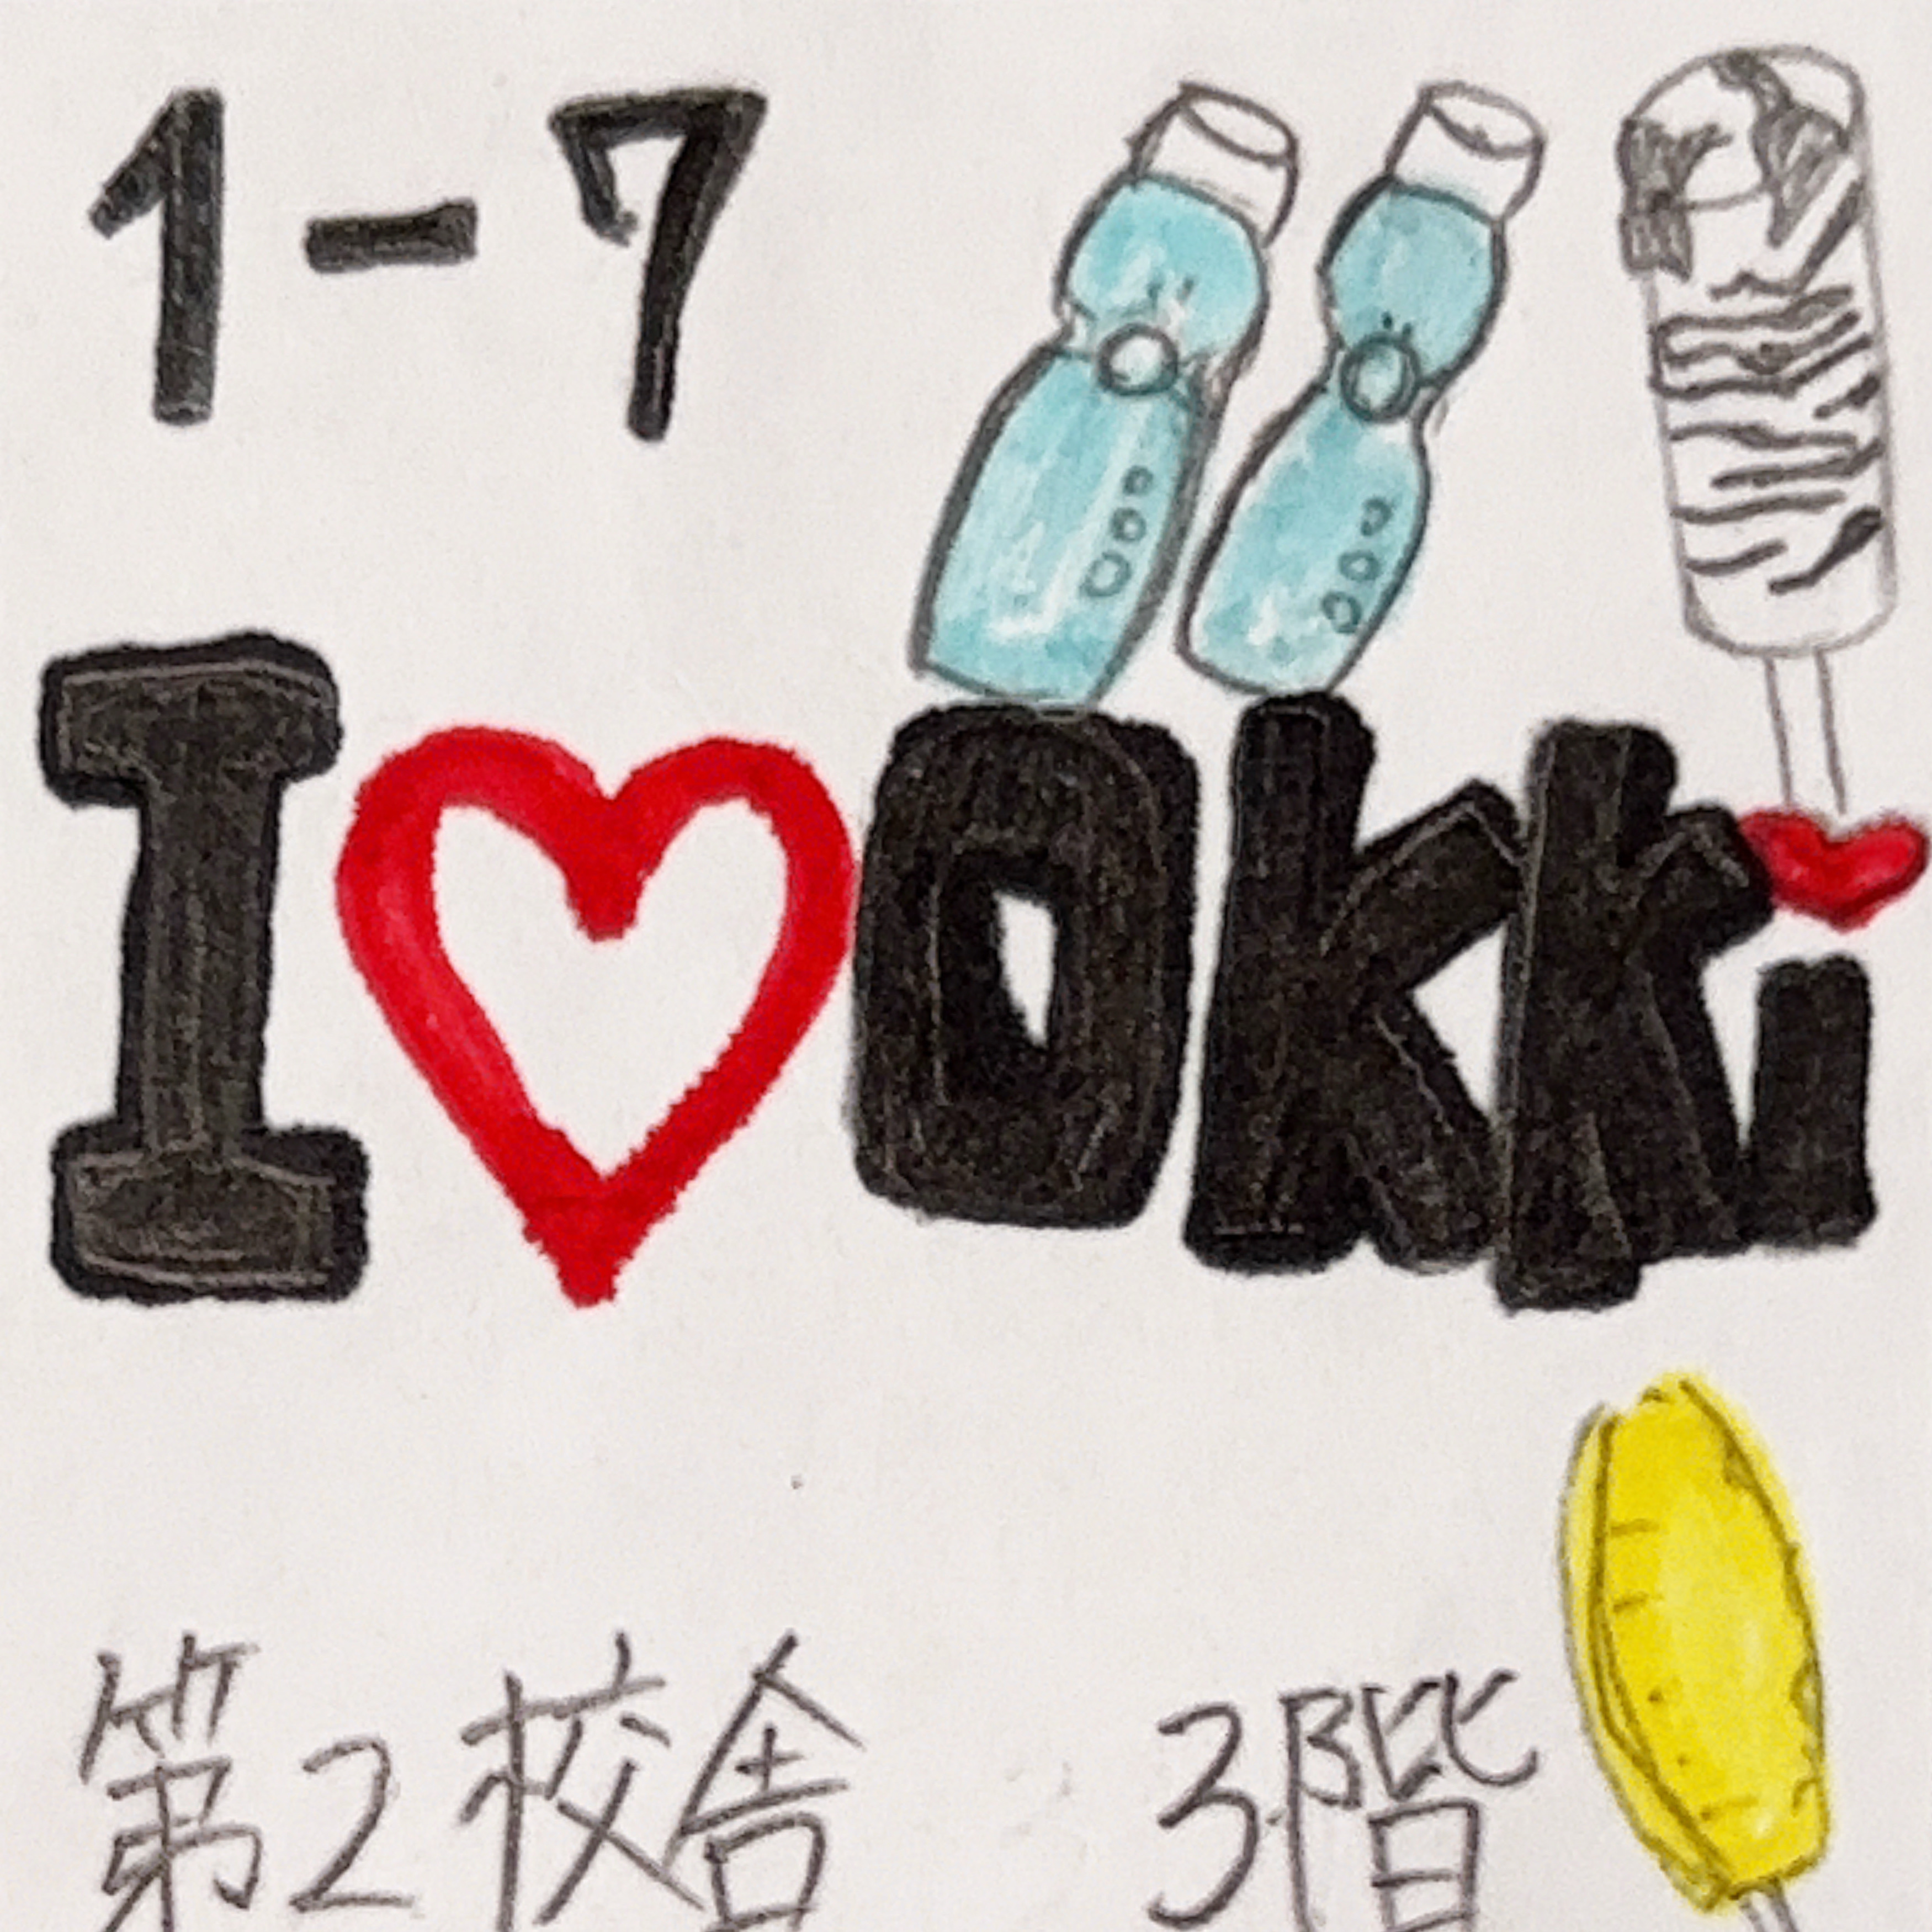 1-7
I♡OKKi
第2校舎 3階